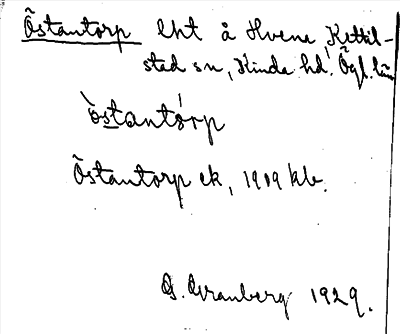 Östantorp lht å Hvena, Kettil-
stad sn, Kinda hd. Ögl. län
òstantórp
Östantorp ek, 1909 kb.
G. Granberg 1929.